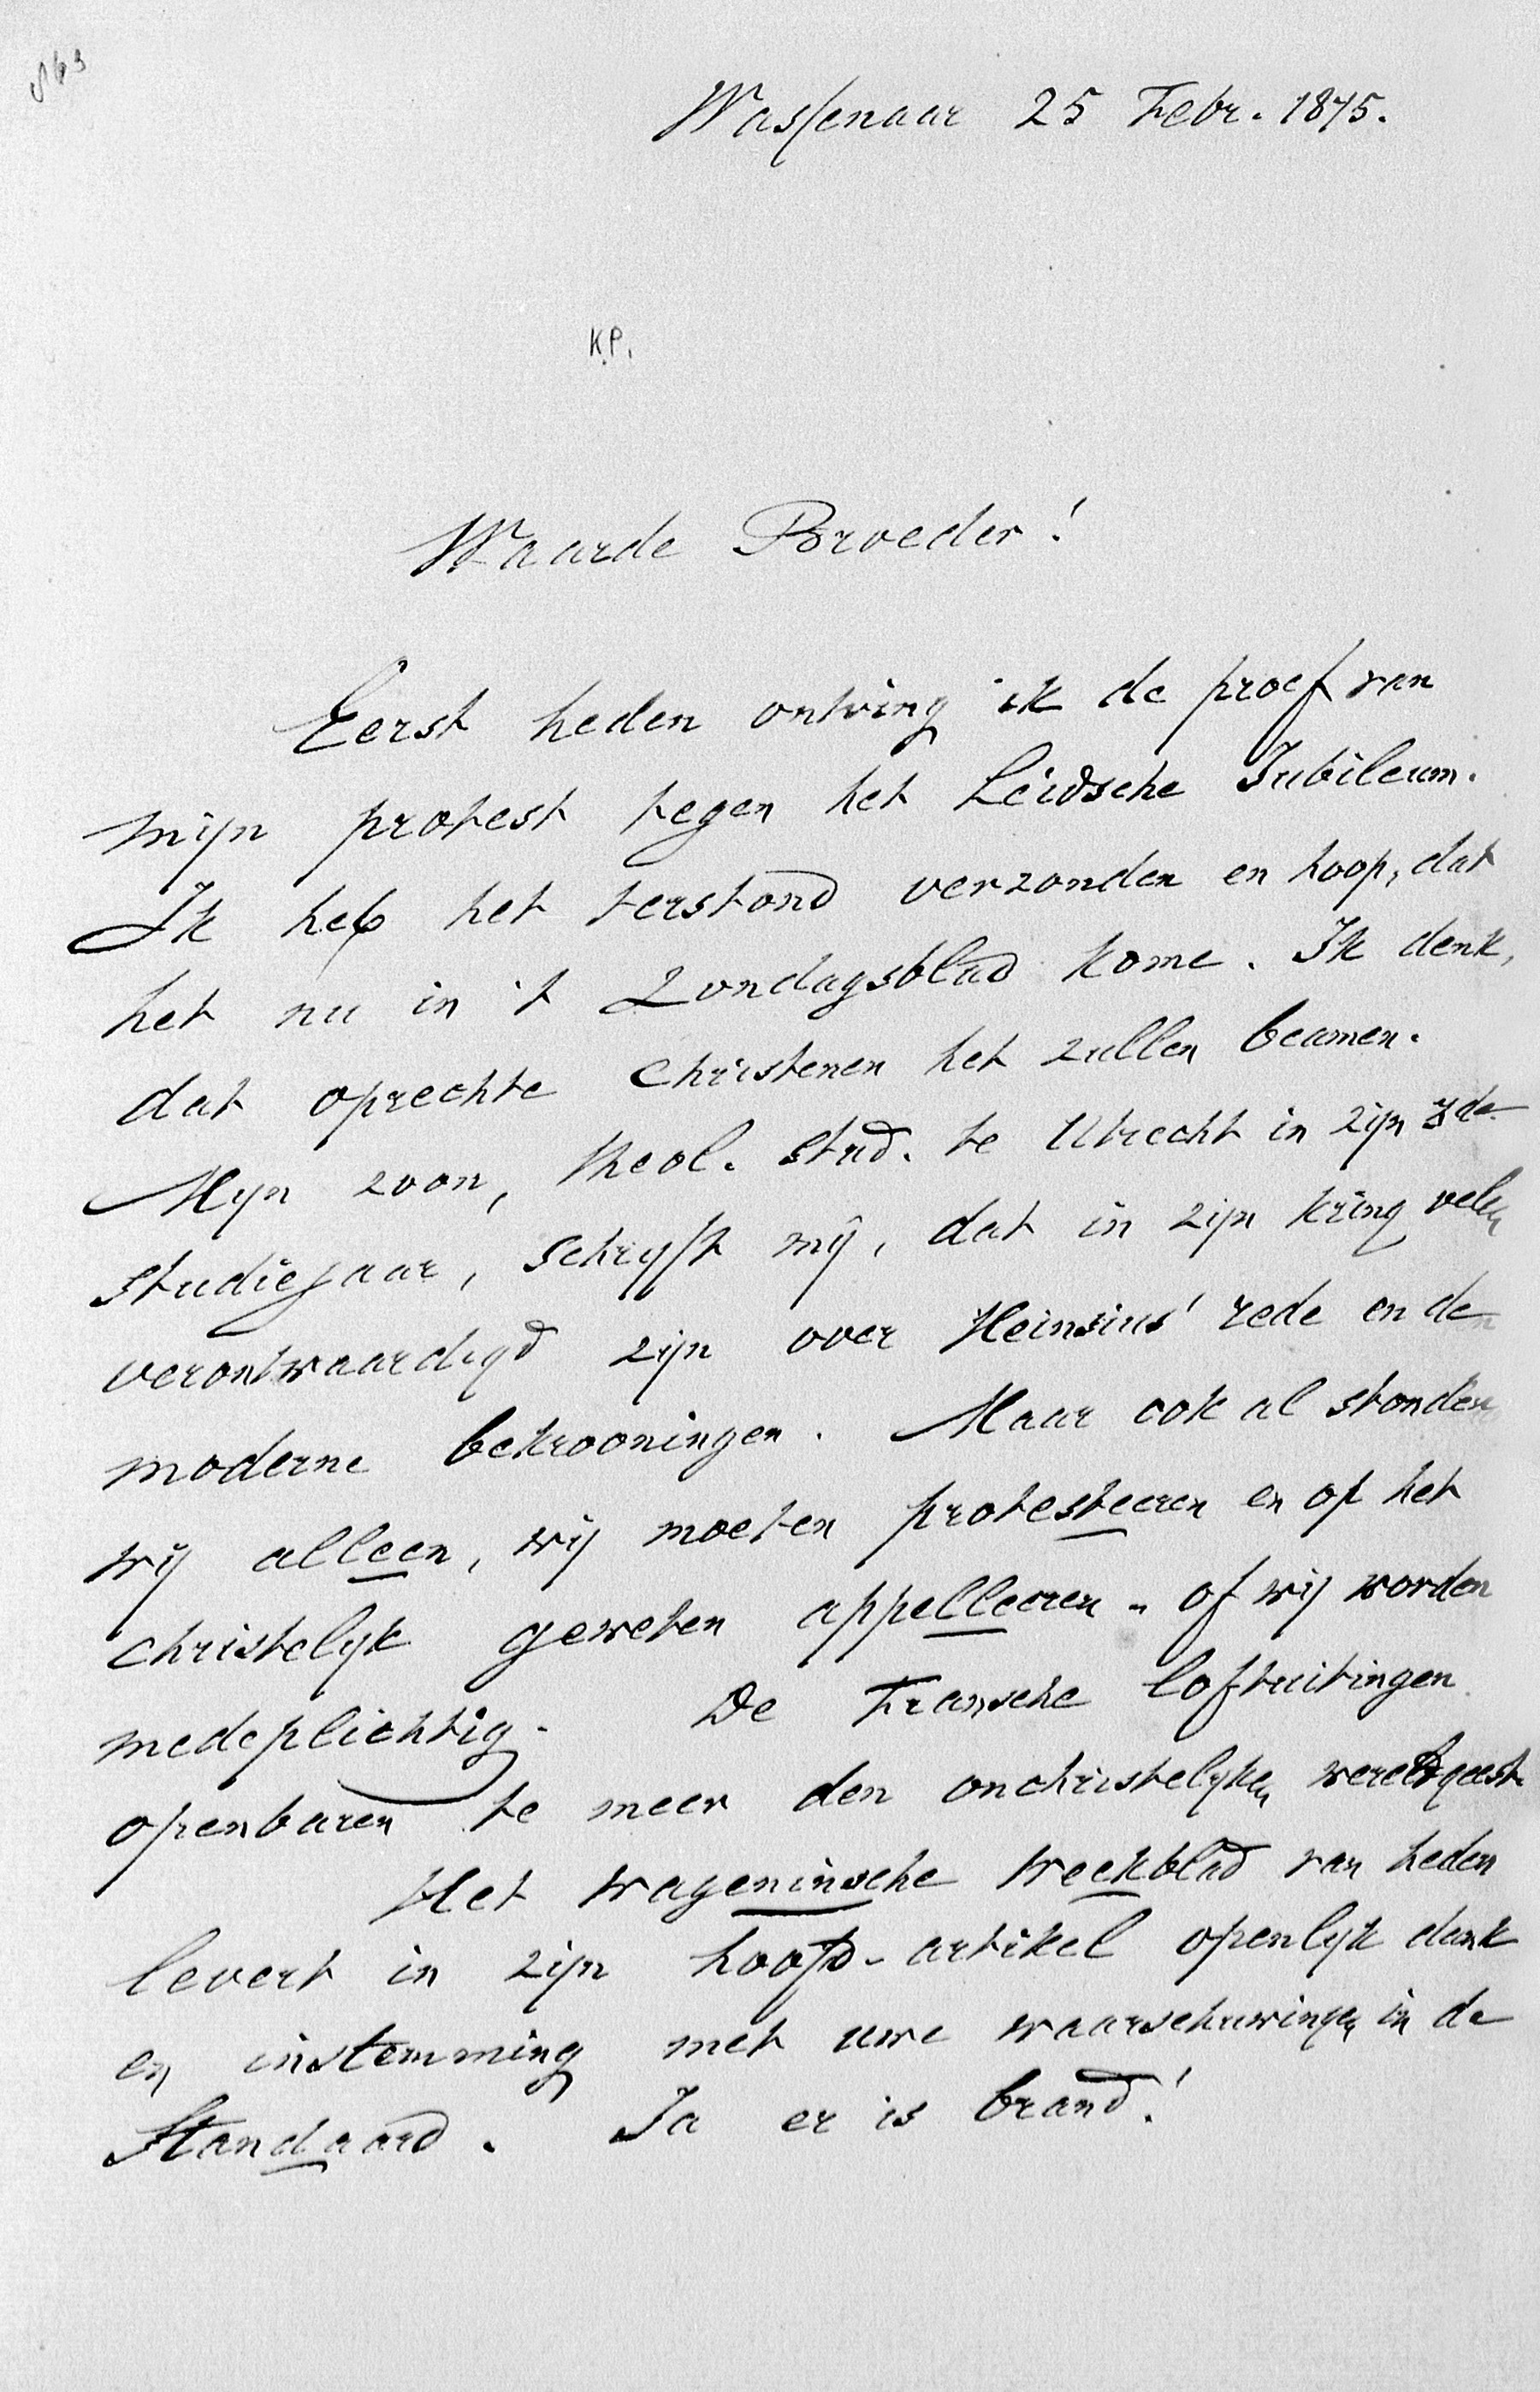 863
Wassenaar 25 Febr. 1875.
K.P.
Waarde Broeder!
Eerst heden ontving ik de proef van
mijn protest tegen het Leidsche Jubileum.
Ik heb het terstond verzonden en hoop, dat
het nu in 't Zondagsblad kome. Ik denk,
dat oprechte Christenen het zullen beamen.
Mijn zoon, theol. stud. te Utrecht in zijn 3de
studiejaar, schrijft mij, dat in zijn kring velen
verontwaardigd zijn over Heinsius' rede en de
moderne bekrooningen. Maar ook al stonden
wij alleen, wij moeten protesteeren en op het
christelijk geweten appelleeren - of wij worden
medeplichtig. De Fransche loftuitingen
openbaren te meer den onchristelijken wereldgeest
Het Wageninsche Weekblad van heden
levert in zijn hoofd-artikel openlijk dank
en instemming met uwe waarschuwingen in de
Standaard. Ja er is brand!